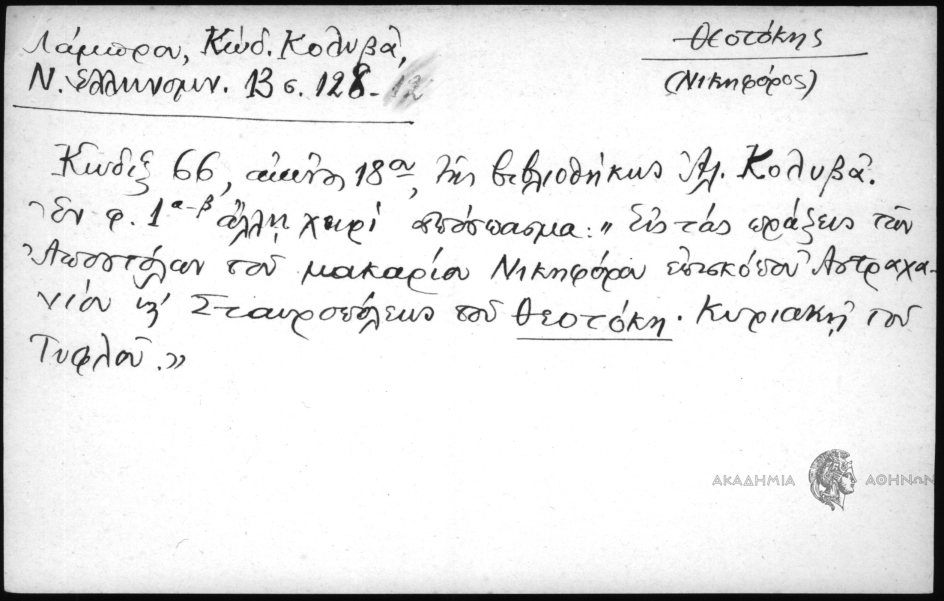 Λάμπρου, Κώδ. Κολυβᾶ,
Ν. Ἑλληνομν. 13 σ. 128-
Θεοτόκης
(Νικηφόρος)
Κῶδιξ 66, αἰῶνος 18ου, τῆς βιβλιοθήκης Ἀλ. Κολυβᾶ.
Ἐν φ. 1α-β ἄλλῃ χειρὶ ἀπόσπασμα: „Εἰς τὰς πράξεις τῶν
Ἀποστόλων τοῦ μακαρίου Νικηφόρου ἐπισκόπου Ἀστραχα-
νίου κ' Σταυροπόλεως τοῦ Θεοτόκη. Κυριακῇ τοῦ
Τυφλοῦ.»
ΑΚΑΔΗΜΙΑ ΑΘΗΝΩΝ